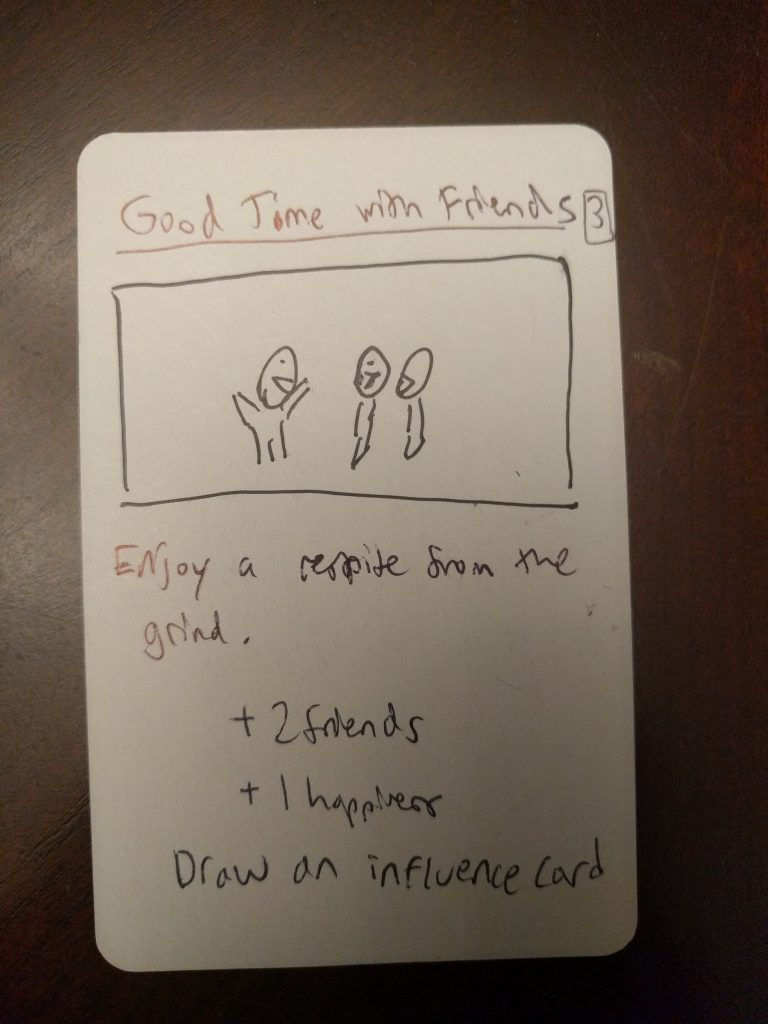 Good Time with Friends 3
Enjoy a respite from the
grind.
+ 2 friends
+ 1 happiness
Draw an influence card